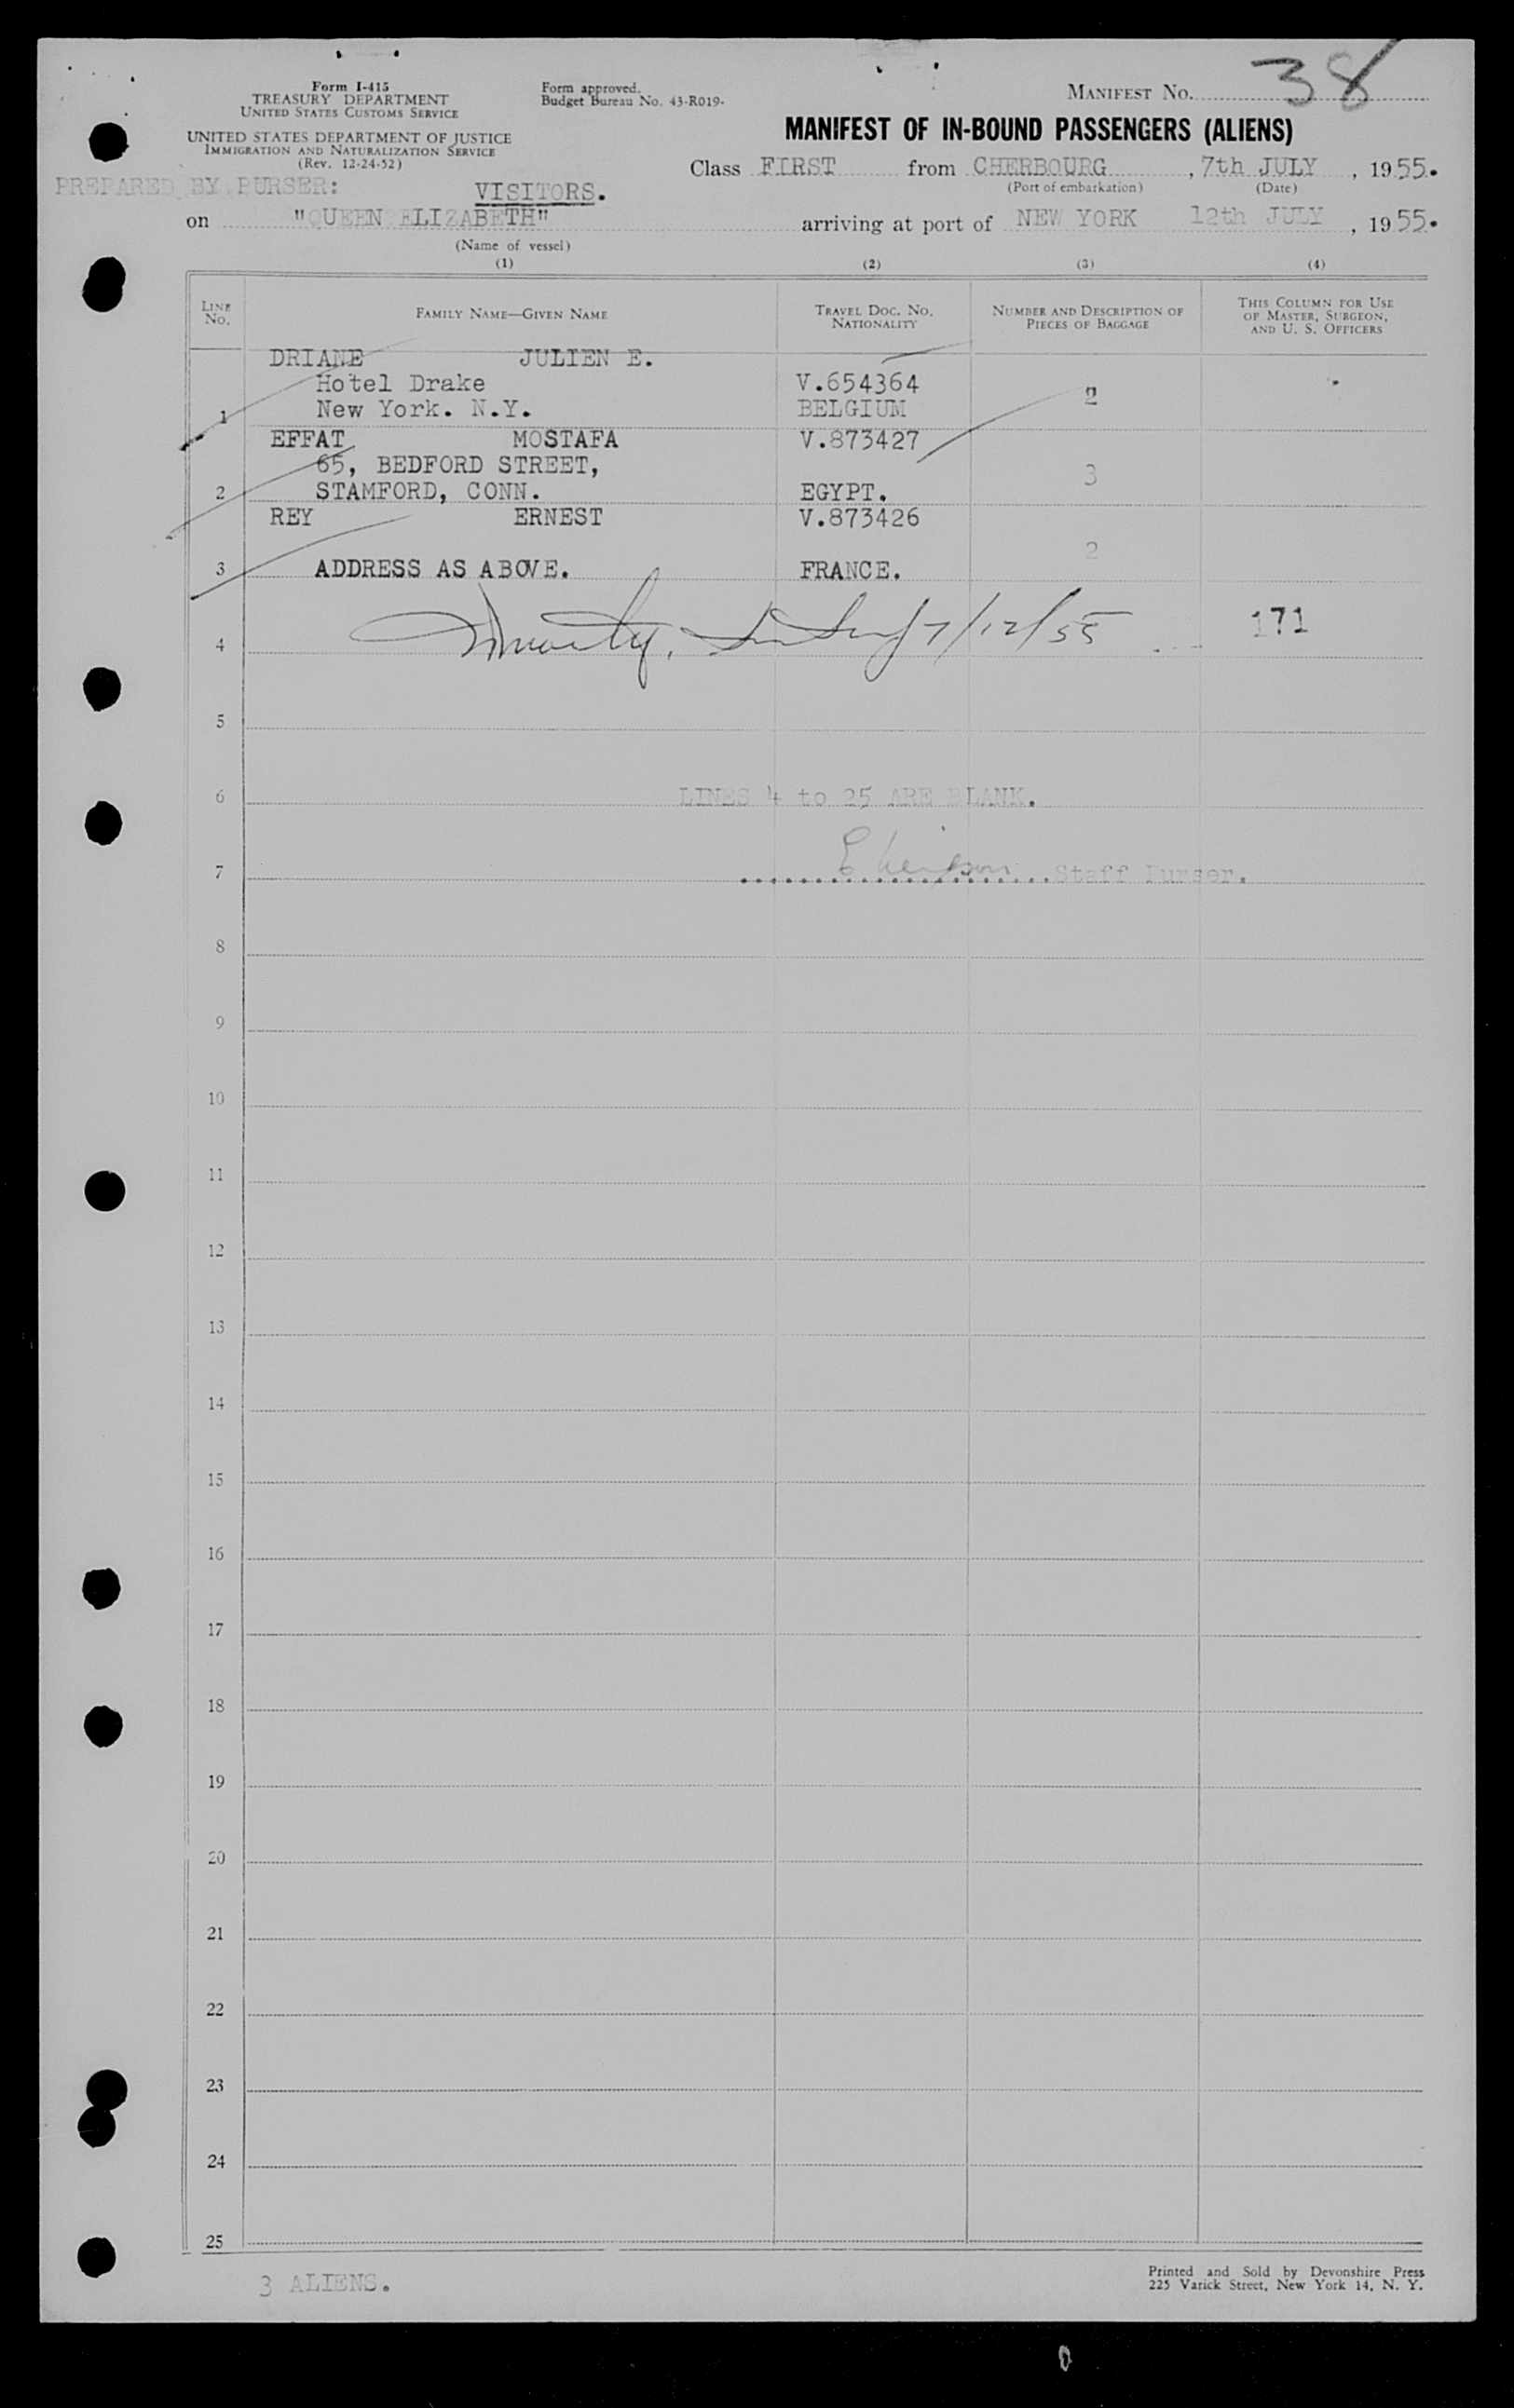 Form I-415
TREASURY DEPARTMENT
UNITED STATES CUSTOMS SERVICE
UNITED STATES DEPARTMENT OF JUSTICE
IMMIGRATION AND NATURALIZATION SERVICE
(Rev. 12-24-52)
Form approved.
Budget Bureau No. 43-R019-
MANIFEST NO. 38
MANIFEST OF IN-BOUND PASSENGERS (ALIENS)
Class FIRST from CHERBOURG, 7th JULY, 1955.
(Port of embarkation) (Date)
PREPARED BY PURSER: VISITORS.
on "QUEEN ELIZABETH" arriving at port of NEW YORK 12th JULY, 1955.
(Name of vessel)
(1) (2) (3) (4)
LINE NO. FAMILY NAME—GIVEN NAME TRAVEL DOC. NO. NATIONALITY NUMBER AND DESCRIPTION OF PIECES OF BAGGAGE THIS COLUMN FOR USE OF MASTER, SURGEON, AND U. S. OFFICERS
DRIANE JULIEN E.
Hotel Drake V.654364 2
1 New York. N.Y. BELGIUM
EFFAT MOSTAFA V.873427
65, BEDFORD STREET, 3
2 STAMFORD, CONN. EGYPT.
REY ERNEST V.873426
2
3 ADDRESS AS ABOVE. FRANCE.
7/12/55 171
4
5
6 LINES 4 to 25 ARE BLANK.
7 Staff Purser.
8
9
10
11
12
13
14
15
16
17
18
19
20
21
22
23
24
25
3 ALIENS.
Printed and Sold by Devonshire Press
225 Varick Street, New York 14, N. Y.